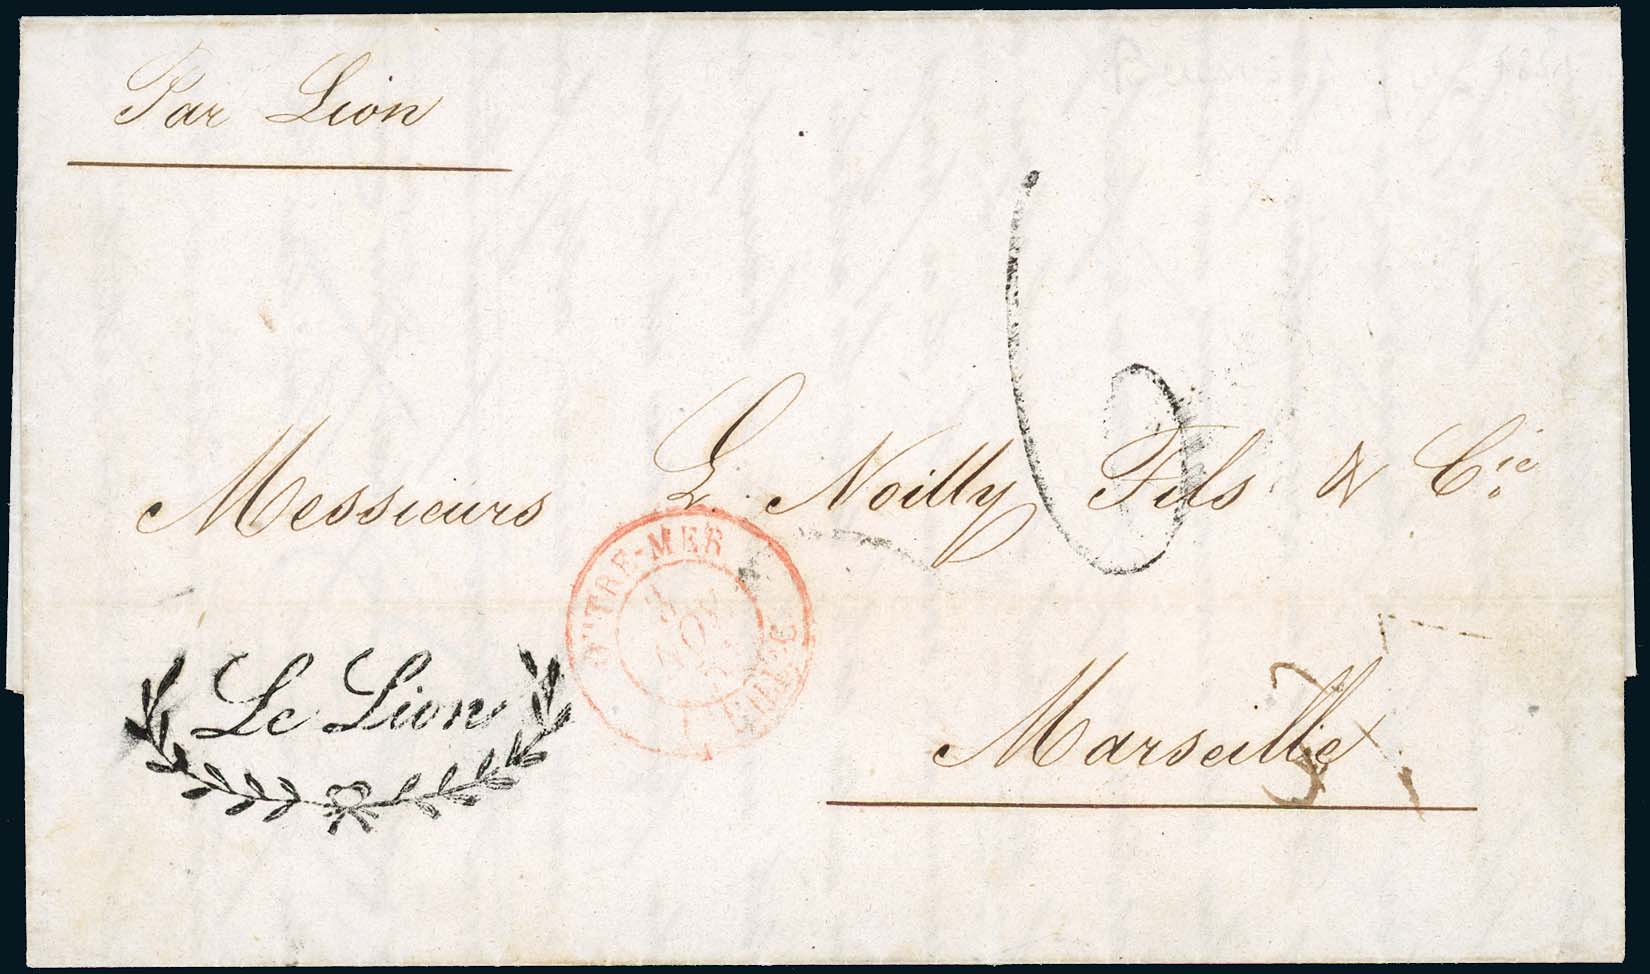 Par Lion
6
Messieurs L. Noilly Fils & Cie
OUTRE-MER
3
NOV
Le Lion
Marseille